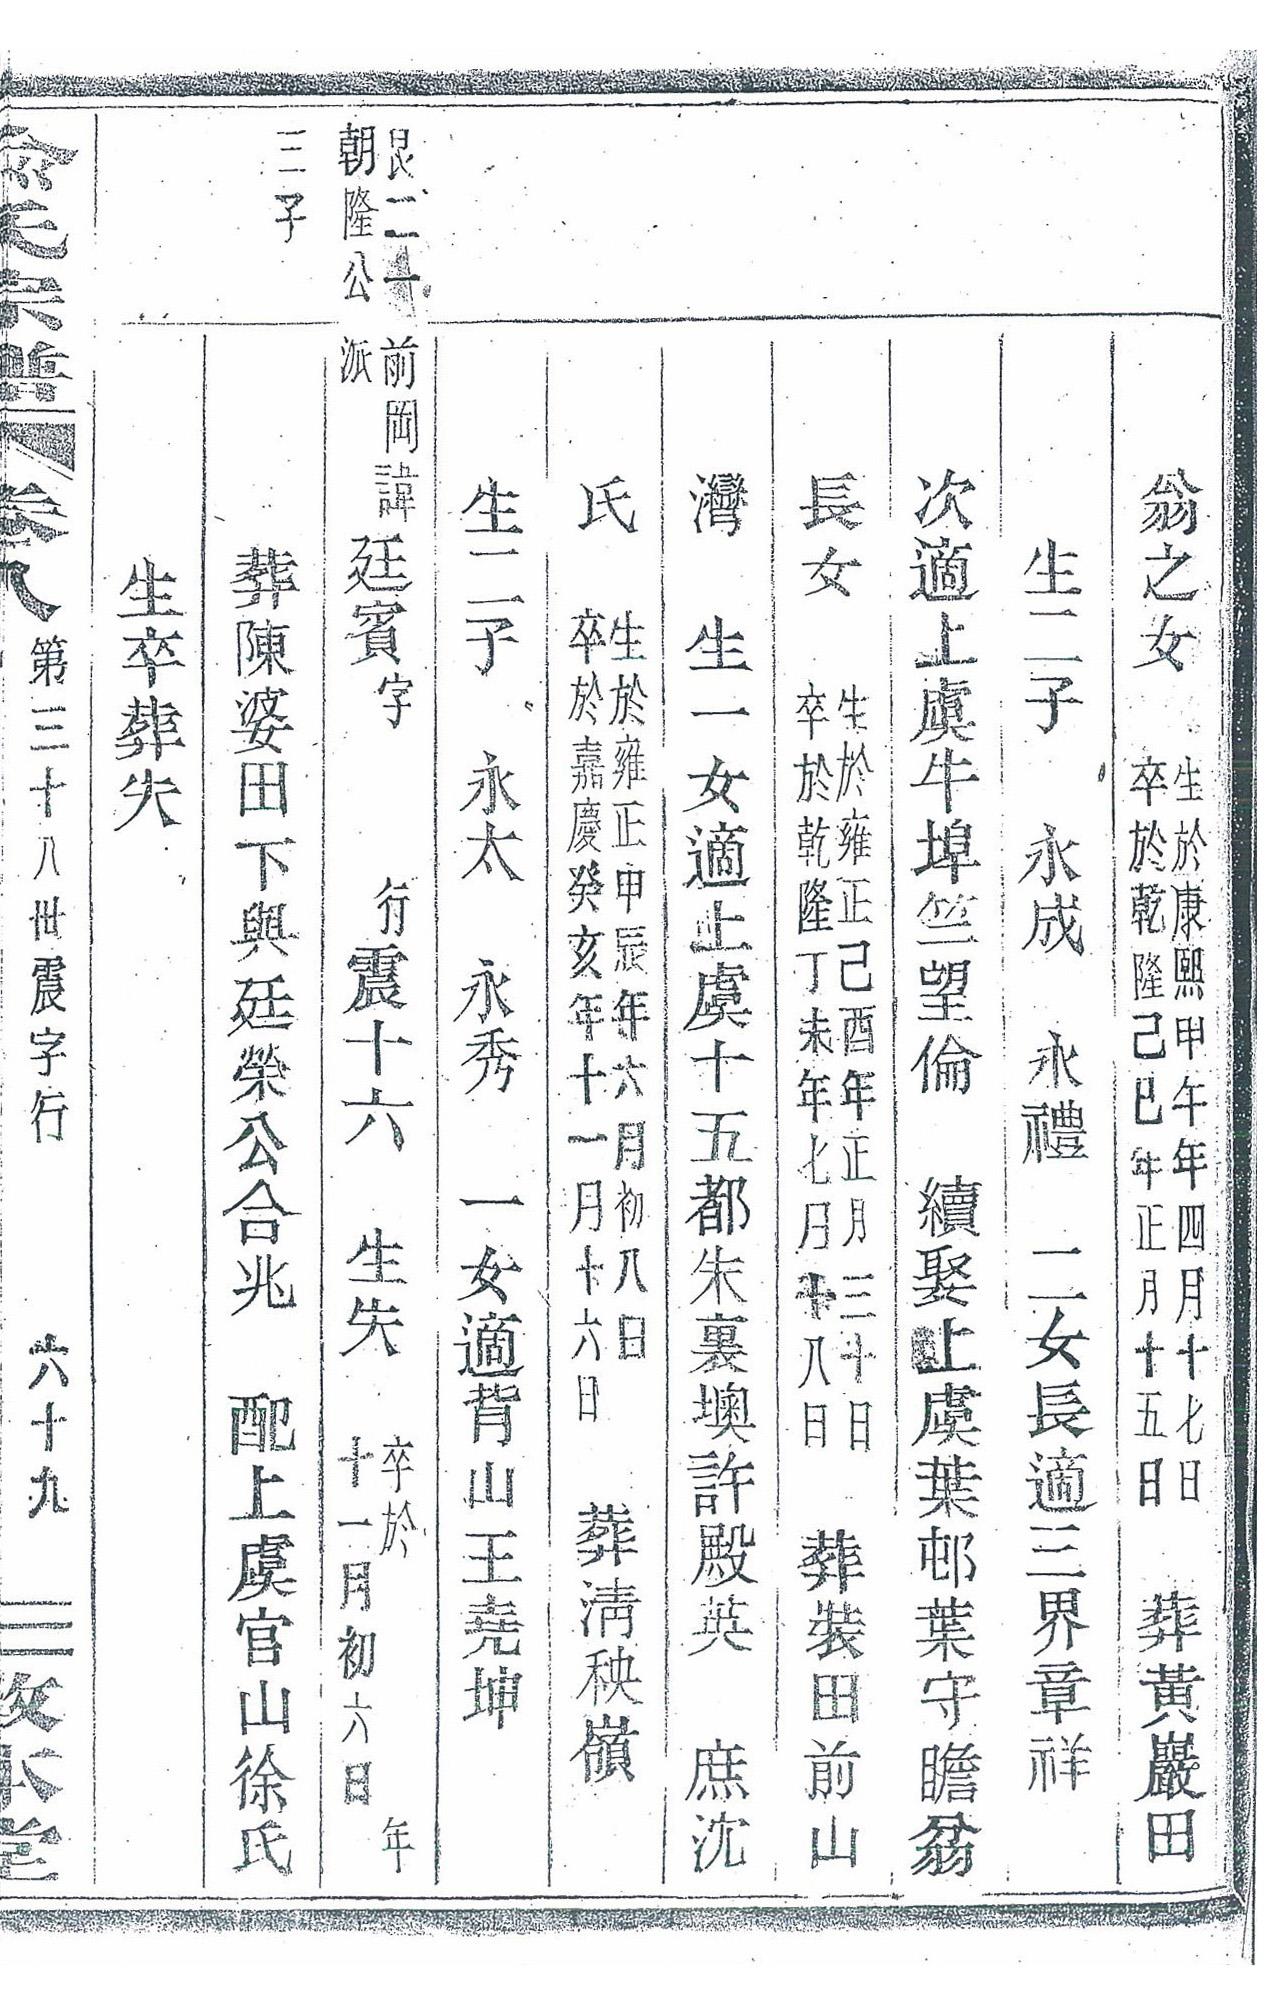 翁之女 生於康熙甲午年四月十七日 卒於乾隆己巳年正月十五日 葬黃巖田
生二子 永成 永禮 二女長適三界章祥
次適上虞牛埠竺望倫 續娶上虞葉邨葉守瞻翁
長女 生於雍正己酉年正月三十日 卒於乾隆丁未年七月十八日 葬裝田前山
灣 生一女適上虞十五都朱裏墺許殿英 庶沈
氏 生於雍正甲辰年六月初八日 卒於嘉慶癸亥年十一月十六日 葬淸秧嶺
生二子 永太 永秀 一女適背山王堯坤
艮二十一
朝隆公
三子
前岡派 諱廷賓字 行震十六 生失 卒於 年十一月初六日
葬陳婆田下與廷榮公合兆 配上虞官山徐氏
生卒葬失
俞氏宗譜 卷八 第三十八世震字行 六十九 敦本堂